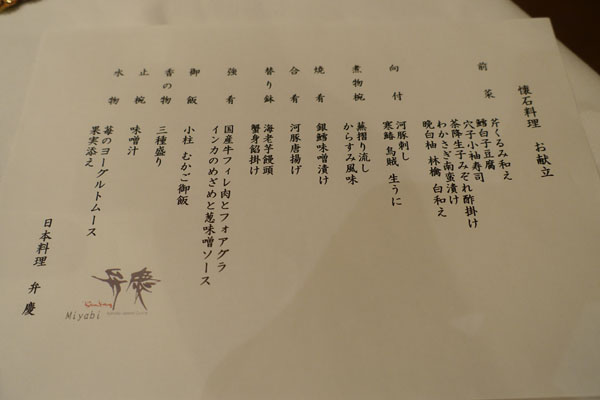 懐石料理 お献立
前菜
芹くるみ和え
鱈白子豆腐
穴子小袖寿司
茶降生子みぞれ酢掛け
わかさぎ南蛮漬け
晩白柚 林檎 白和え
向付
河豚刺し
寒鰆 烏賊 生うに
煮物椀
蕪摺り流し
からすみ風味
焼肴
銀鱈味噌漬け
合肴
河豚唐揚げ
替り鉢
海老芋饅頭
蟹身餡掛け
強肴
国産牛フィレ肉とフォアグラ
インカのめざめと葱味噌ソース
御飯
小柱 むかご御飯
香の物
三種盛り
止椀
味噌汁
水物
苺のヨーグルトムース
果実添え
日本料理 弁慶
弁慶
Miyabi